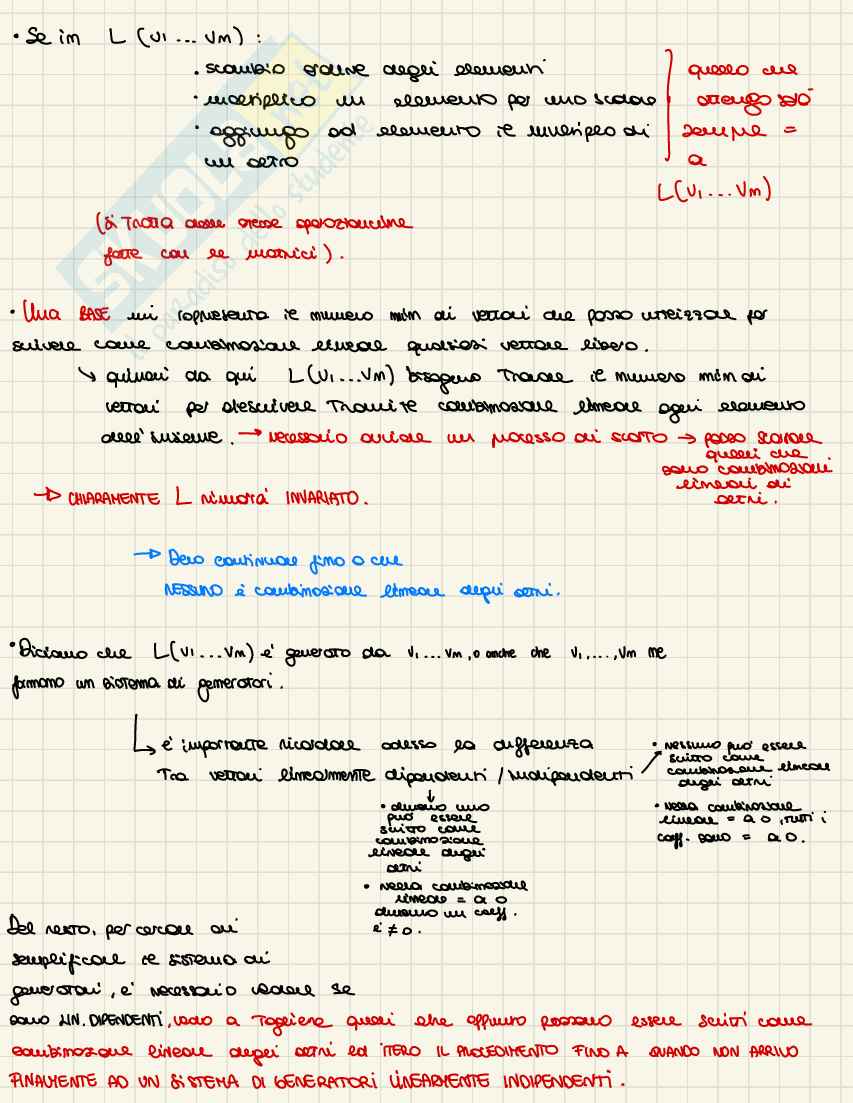 • Se in L (v1 ... vm) :
• scambio ordine degli elementi
• moltiplico un elemento per uno scalare
• aggiungo ad elemento il multiplo di
un altro
quello che
ottengo sarà
sempre =
a
L(v1 ... vm)
(si tratta delle stesse operazioni
fatte con le matrici).
SKUOLA.net
il paradiso dello studente
• Una BASE mi rappresenta il numero min di vettori che posso utilizzare per
scrivere come combinazione lineare qualsiasi vettore libero.
↳ quindi da qui L(v1...vm) bisogna trovare il numero min di
vettori per descrivere tramite combinazione lineare ogni elemento
dell'insieme. → necessario avviare un processo di scarto → posso scartare
quelli che
sono combinazioni
lineari di
altri.
→ CHIARAMENTE L rimarrà INVARIATO.
→ Devo continuare fino a che
NESSUNO è combinazione lineare degli altri.
• Diciamo che L(v1...vm) è generato da v1...vm, o anche che v1,...,vm ne
formano un sistema di generatori.
↳ è importante ricordare adesso la differenza
tra vettori linearmente dipendenti / indipendenti
• nessuno può essere
scritto come
combinazione lineare
degli altri
• nella combinazione
lineare = a 0, tutti i
coeff. sono = a 0.
• almeno uno
può essere
scritto come
combinazione
lineare degli
altri
• nella combinazione
lineare = a 0
almeno un coeff.
è ≠ 0.
Del resto, per cercare di
semplificare il sistema di
generatori, è necessario vedere se
sono LIN. DIPENDENTI, vado a togliere quelli che appunto possono essere scritti come
combinazione lineare degli altri ed ITERO IL PROCEDIMENTO FINO A QUANDO NON ARRIVO
FINALMENTE AD UN SISTEMA DI GENERATORI LINEARMENTE INDIPENDENTI.